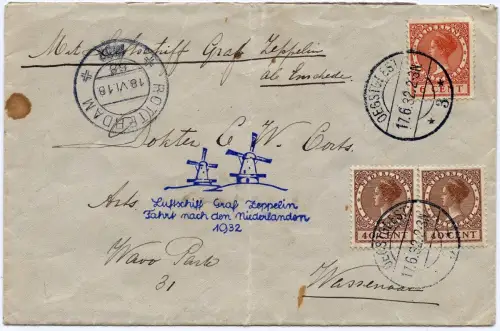 Mit Luftschiff Graf Zeppelin
ab Enschede
ROTTERDAM
18.VI.18
OEGSTGEEST
17.6.32.2-3N
3
Dokter C W. Corts.
Arts
Luftschiff Graf Zeppelin
Fahrt nach den Niederlanden
1932
Wavo Park
31
Wassenaar
40 CENT
40 CENT
OEGSTGEEST
17.6.32.2-3N